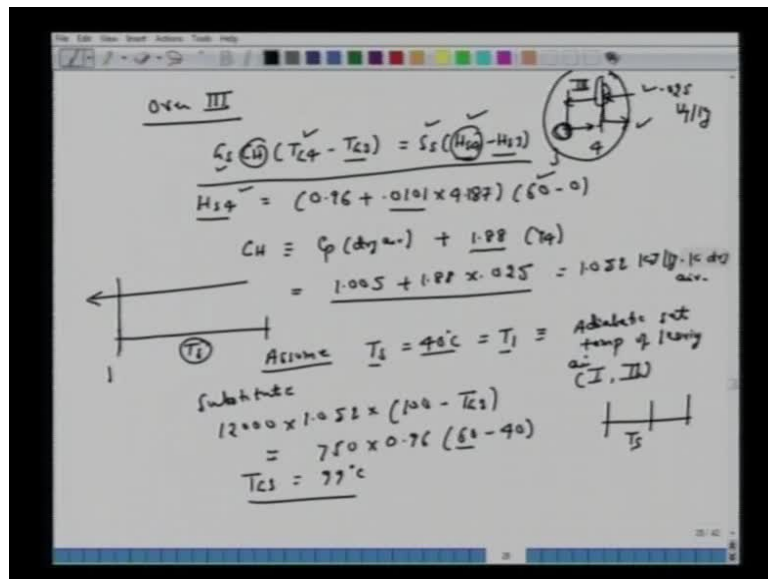 File Edit View Insert Actions Tools Help
Oven III
III
.025
4
Gs CH (TG4 - TG3) = Ss (HS4 - HS3)
HS4 = (0.96 + .0101 x 4.187) (60 - 0)
CH ≡ Cp (dry air) + 1.88 (Y4)
= 1.005 + 1.88 x .025 = 1.052 KJ/kg.K dry
air.
TS
1
Assume TS = 40°C = T1 ≡ Adiabatic sat
temp of leaving
air
(I, II)
Substitute
12000 x 1.052 x (100 - TG3)
= 750 x 0.96 (60 - 40)
TG3 = 99°C
TS
28